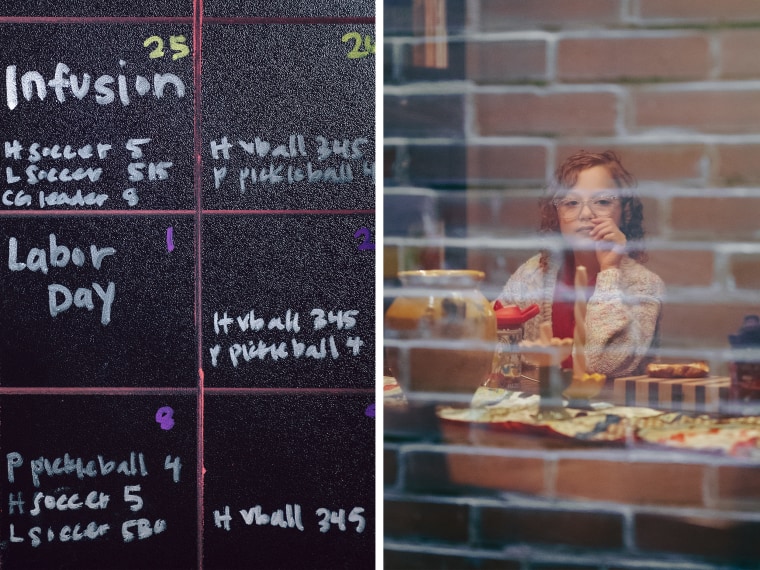 25
Infusion
H soccer 5
L soccer 515
CG leader 8
H vball 345
P pickleball 4
1
Labor
Day
2
H vball 345
P pickleball 4
8
P pickleball 4
H soccer 5
L soccer 530
H vball 345